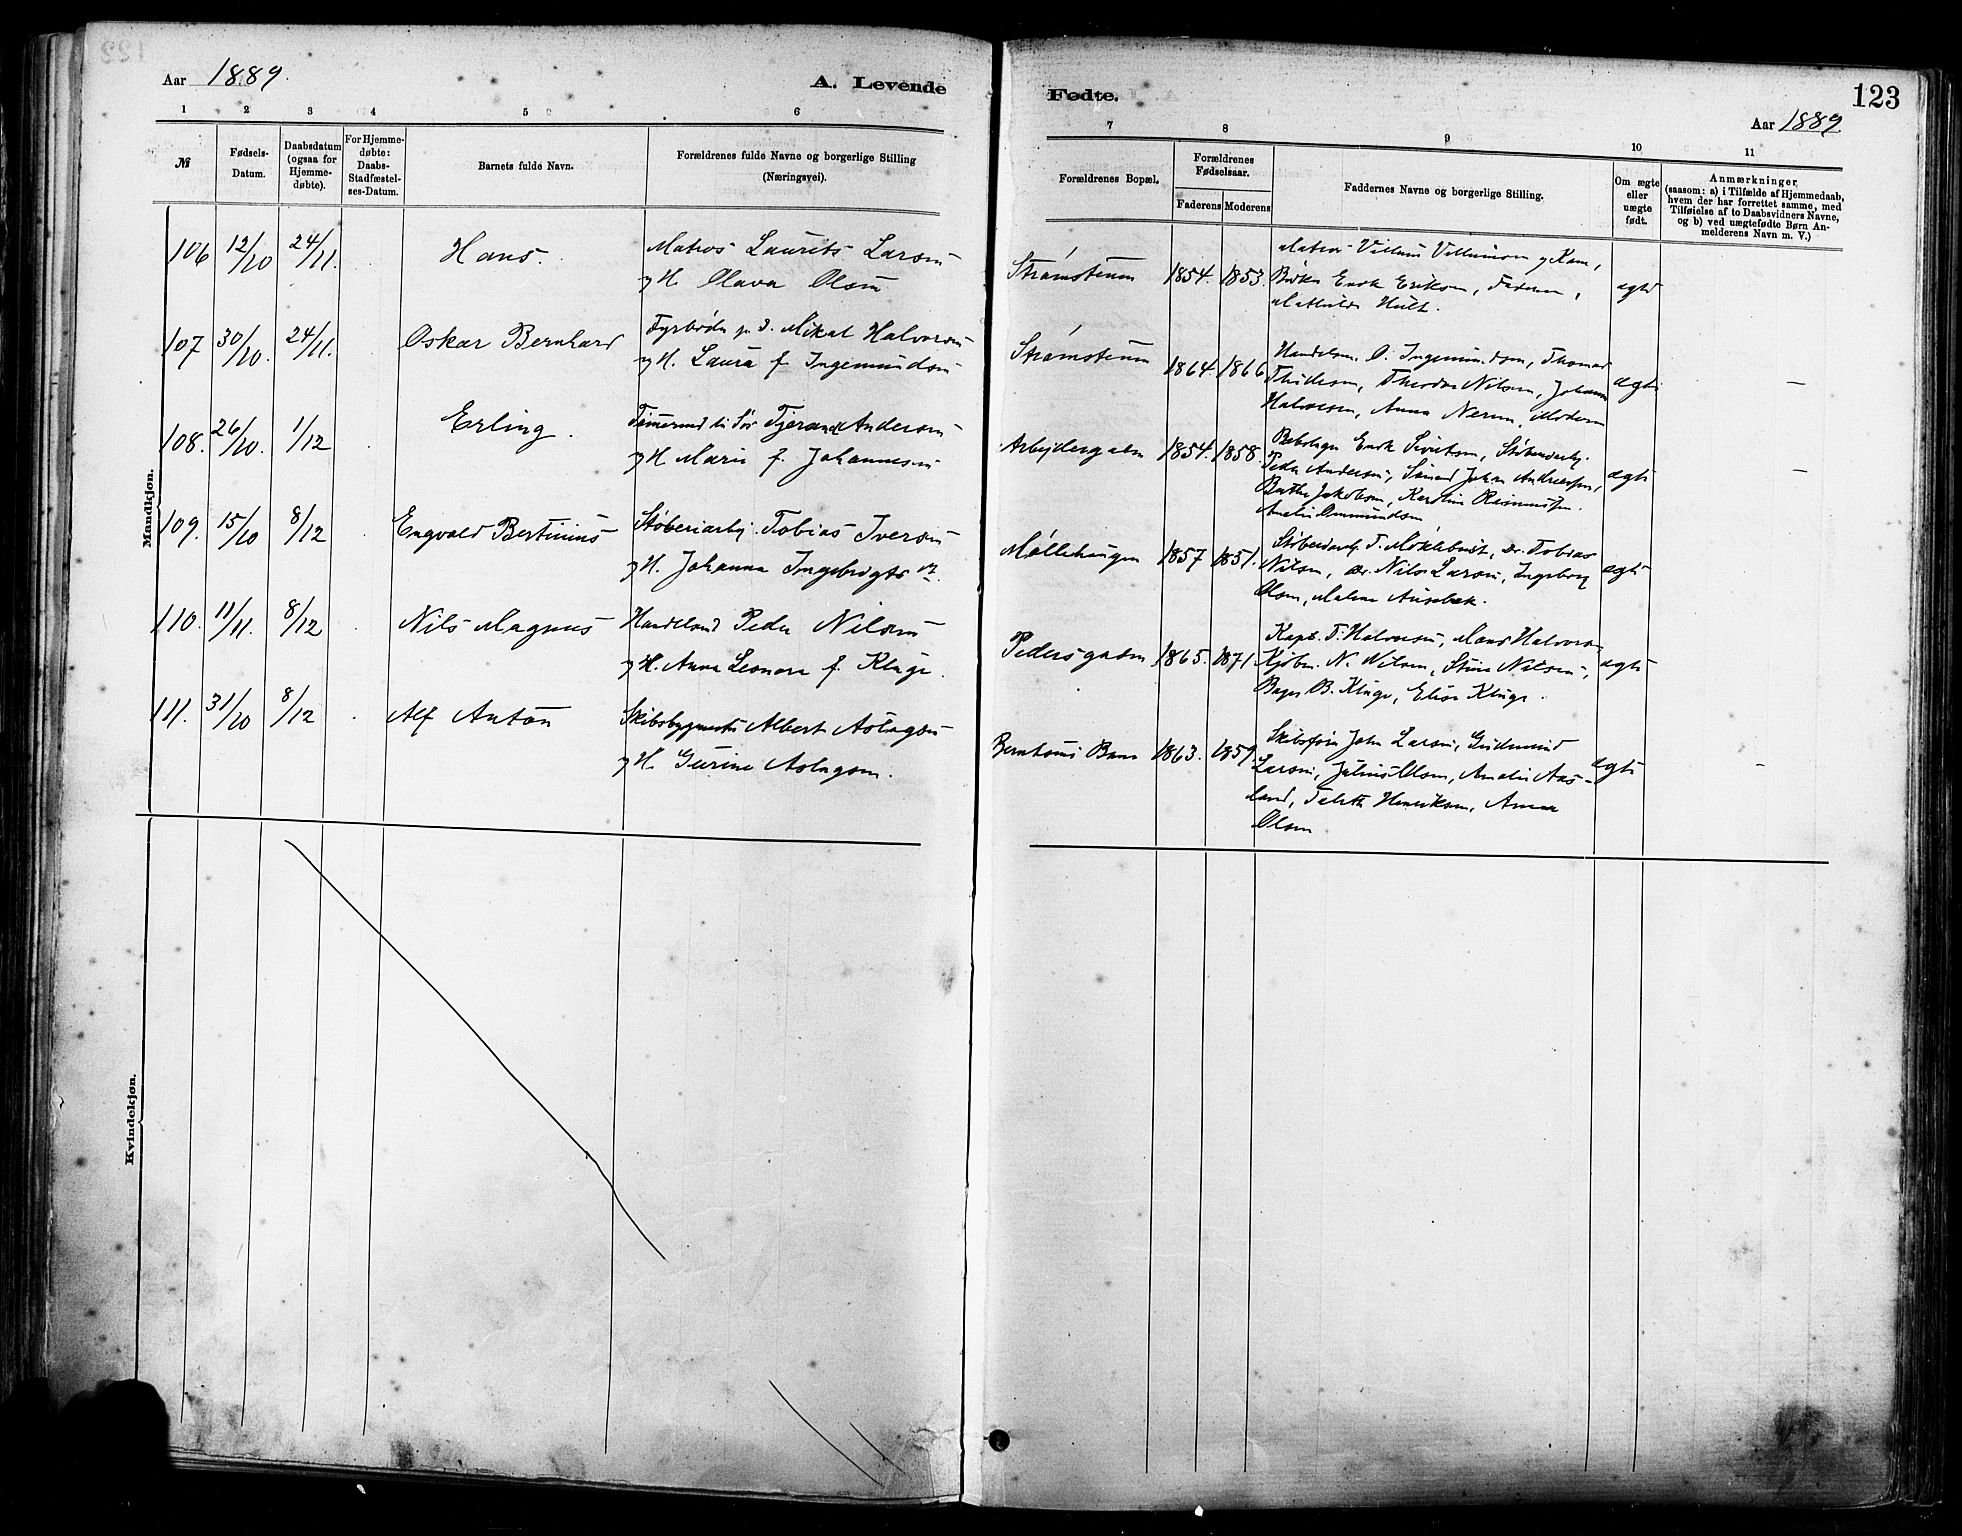 Aar 1889.
A. Levende
1 2 3 4 5 6
№
Fødsels-
Datum.
Daabsdatum
(ogsaa for
Hjemme-
døbte).
For Hjemme-
døbte:
Daabs-
Stadfæstel-
ses-Datum.
Barnets fulde Navn.
Forældrenes fulde Navne og borgerlige Stilling
(Næringsvei).
Mandkjøn.
106 12/10 24/11. Hans. Matros Laurits Larsen
og H. Olava Olsen
107 30/10. 24/11. Oskar Bernhard Fyrbøder Mikal Halvorsen
og H. Laura f. Ingemundsen
108. 26/10. 1/12 Erling. Tjerand Andersen
og H Marie f. Johannesen
109. 15/10 8/12 Engvald Bertinius Støberiarbj. Tobias Iversen
og H. Johanna Ingebrigts
110. 11/11. 8/12 Nils Magnus Handelsmd Peder Nilsen
og H. Anna Leonora f. Kluge.
111. 31/10 8/12 Alf Anton Skibsbygmester Albert Aslagsen
og H. Gurine Aslagsen.
Kvindekjøn.
Fødte.
123
Aar 1889
7 8 9 10 11
Forældrenes Bopæl.
Forældrenes
Fødselsaar.
Faderens Moderens
Faddernes Navne og borgerlige Stilling.
Om ægte
eller
uægte
født.
Anmærkninger
(saasom: a) i Tilfælde af Hjemmedaab,
hvem der har forrettet samme, med
Tilføielse af to Daabsvidners Navne,
og b) ved uægtefødte Børn An-
melderens Navn m. V.)
Strømsteen 1854. 1853. Matros
Erik Eriksen, Faderen,
Mathilde Hult.
ægte
Strømsteen 1864. 1866 Handelsm. O. Ingemundsen, Thomas
Theodor Nilsen, Johan
Halvorsen, Anna Moderen
ægte –
Arbeidergaden 1854. 1858. Erik Sivertsen, Støberiarbj.
Peder Andersen, Johan Andreassen,
Berthe Jakobsen, Karoline Rasmussen.
Amalie Ommundsen
ægte –
Møllehaugen 1857 1851. Støberiarbj. T. Møklebust, do. Tobias
Nilsen, do. Nils Larsen, Ingeborg
Olsen, Malene
ægte
Pedersgaden 1865. 1871. Kapt. T. Halvorsen, Halvors
Kjøbm. N. Nilsen, Stine Nilsen,
Bager B. Kluge, Elise Kluge.
ægte
1863. 1859. Skibsfører John Larsen, Gudmund
Larsen, Julius Olsen, Amalie Aas-
land, Henriksen, Anna
Olsen
ægte –